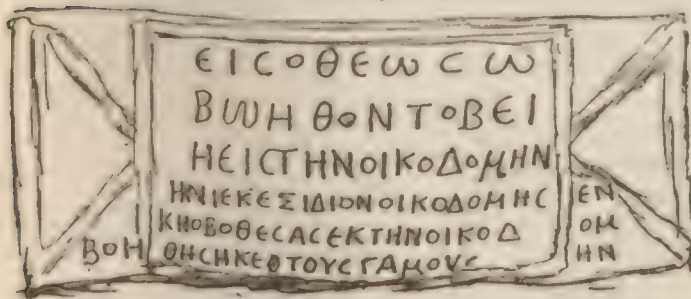 ΕΙCΟΘΕωCω
ΒωΗΘΟΝΤΟΒΕΙ
ΗΕΙCΤΗΝΟΙΚΟΔΟΜΗΝ
ΗΝΙΕΚΕΞΙΔΙΟΝΟΙΚΟΔΟΜΗC ΕΝ
ΚΗΟΒΟΘΕCΑCΕΚΤΗΝΟΙΚΟΔ ΟΜ
ΒΟΗ ΘΗCΗΚΕΘΤΟΥCΓΑΜΟΥC ΗΝ